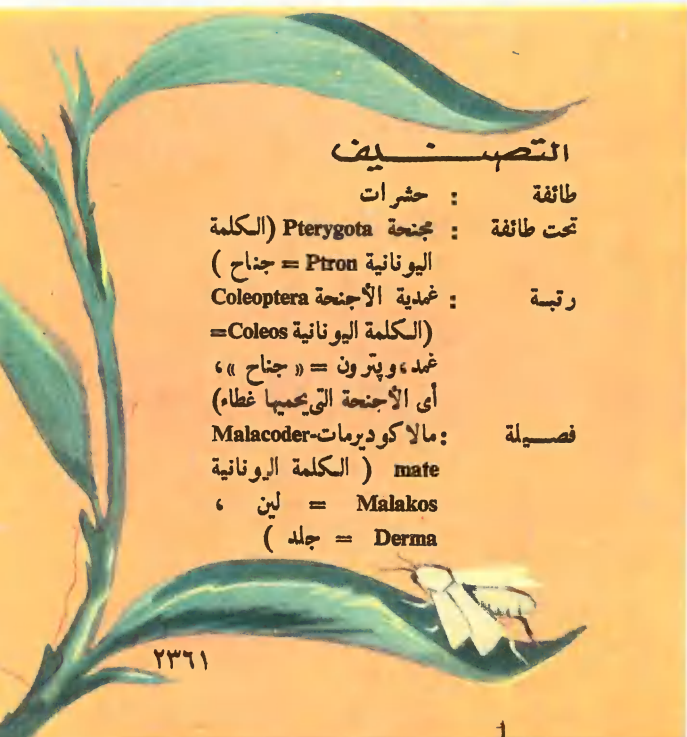 التصنيف
طائفة : حشرات
تحت طائفة : مجنحة Pterygota (الكلمة
اليونانية Ptron = جناح )
رتبة : غمدية الأجنحة Coleoptera
(الكلمة اليونانية Coleos=
غمد ، وپترون = « جناح » ،
أى الأجنحة التى يحميها غطاء)
فصيلة : مالاكوديرمات Malacoder-
mate ( الكلمة اليونانية
Malakos = لين ،
Derma = جلد )
٢٣٦١